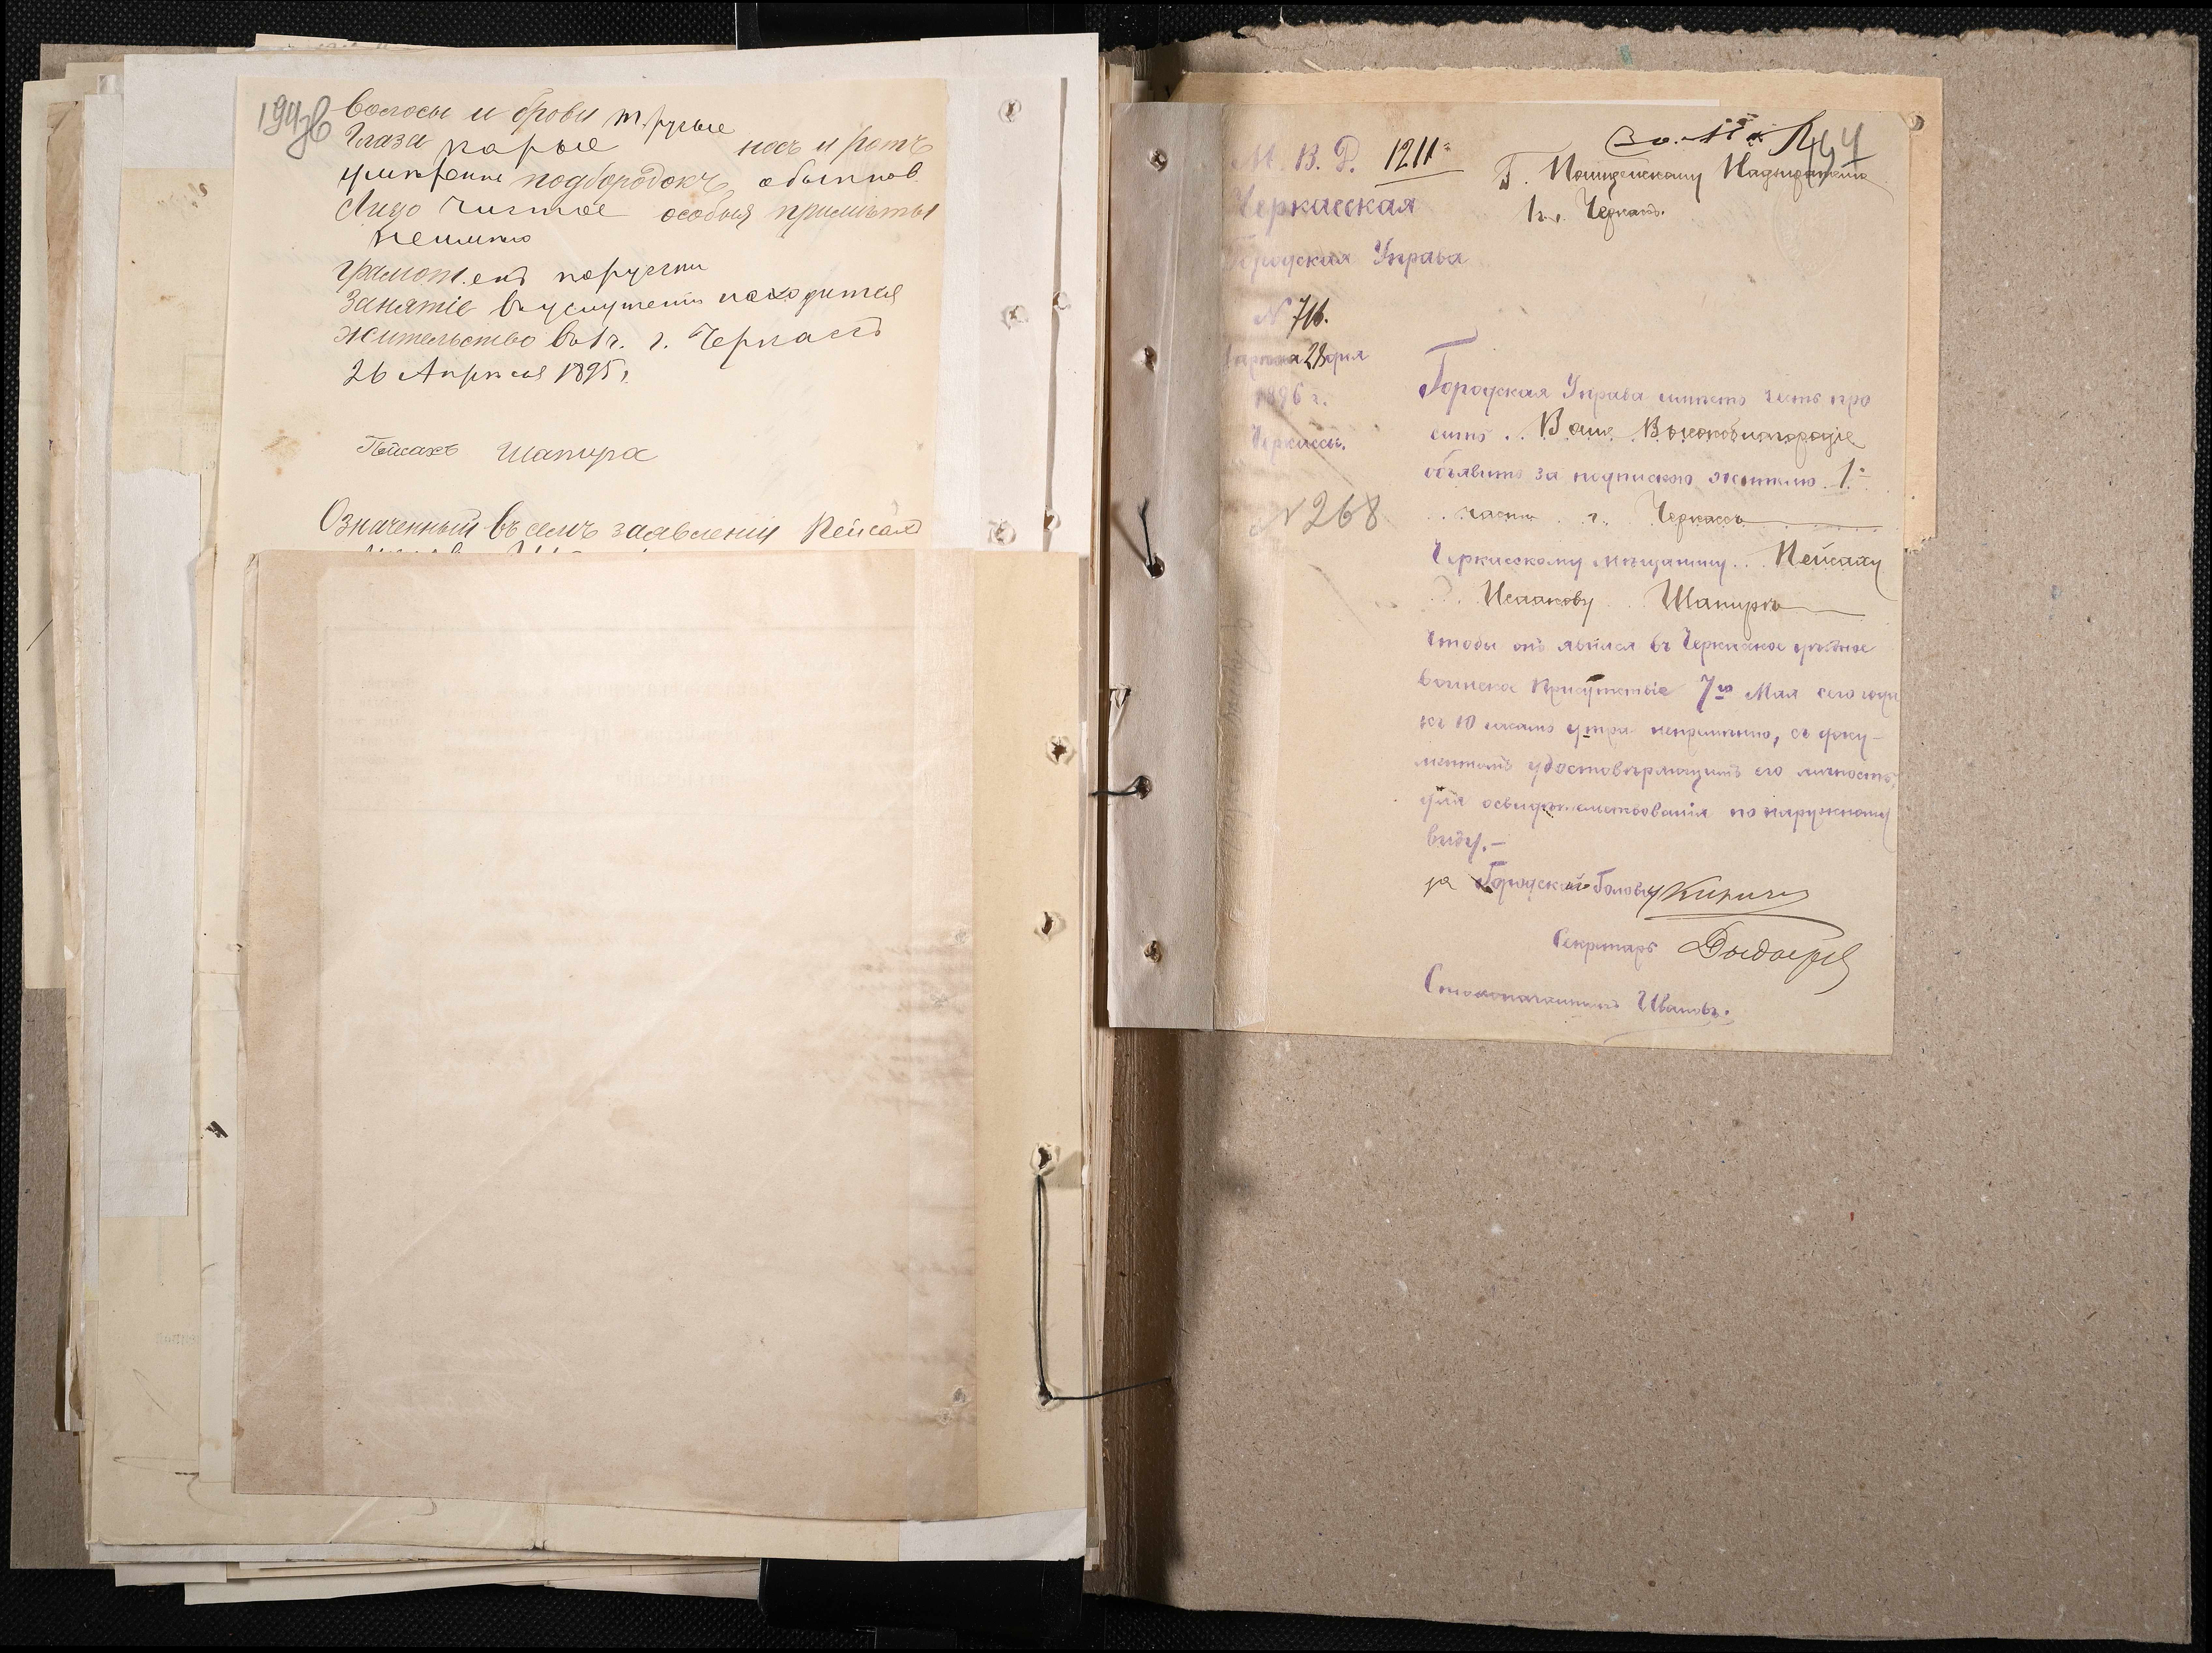 194об
Волосы и брови т. русые
Глаза карые носъ и ротъ
умѣренне подбородокъ обыкнов.
Лицо чистое особыя примѣты
неимѣю
грамот.енъ порусски
Занятіе въ услуженіи находится
жительство во 1 ч. г. Черкассъ
26 Апрѣля 1895 г.
Пейсахъ Шапира
Означенный въ семъ заявленіи Пейсахъ
М. В. Д. 1211
Черкасская
Городская Управа
N 716.
Апрѣля 28 дня
1896 г.
Черкассы.
N 268
Г. Полицейскому Надзирателю
1 ч. Черкассъ.
Городская Управа имѣетъ честь про
сить Ваше Высокоблагородіе
объявить за подпискою жителю 1й
части г. Черкассъ
Черкасскому мѣщанину Пейсаху
Исаакову Шапиро
чтобы онъ явился въ Черкаское уѣздное
воинское Присутствіе 7го Мая сего года
къ 10 часамъ утра непремѣнно, съ доку-
ментомъ удостовѣряющимъ его личность
для освидѣтельствованія по наружному
виду.-
за Городской Голову
Секретарь
Столоначальникъ Ивановъ.